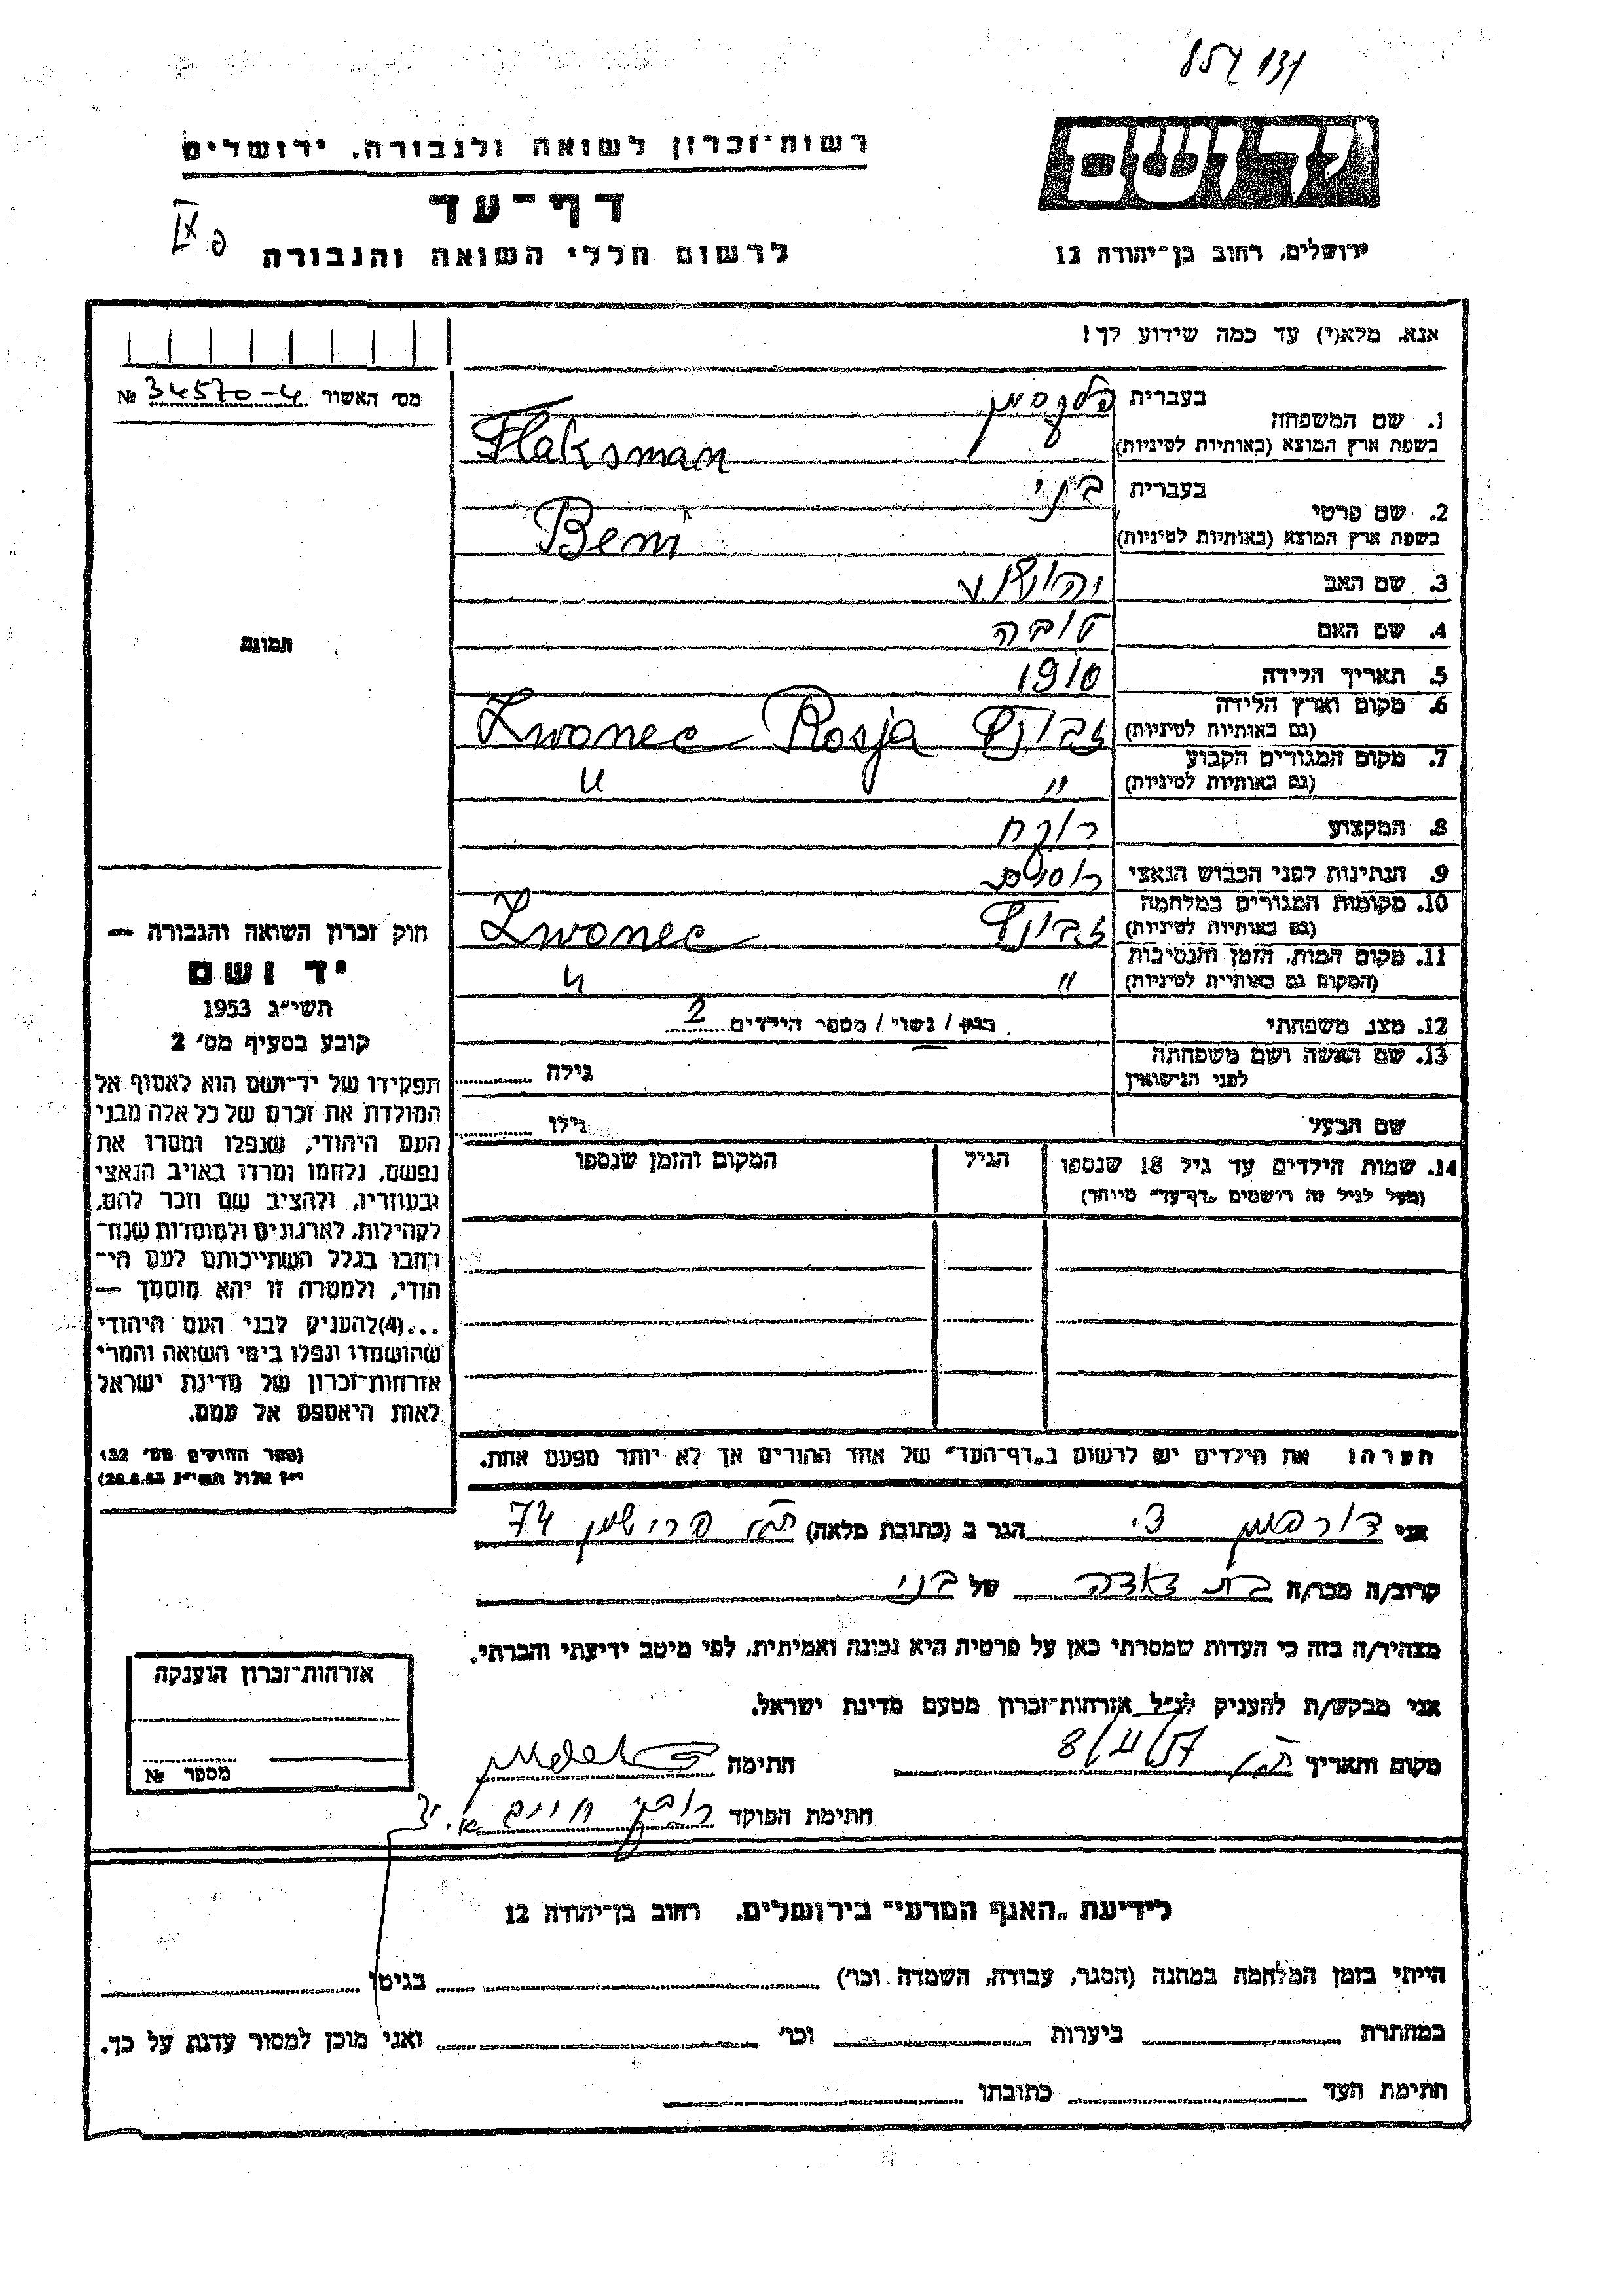 רשות־זכרון לשואה ולגבורה, ירושלים
דף־עד
לרשום חללי השואה והגבורה
פ IX
יד ושם
ירושלים, רחוב בן־יהודה 12
אנא, מלא(י) עד כמה שידוע לך!
מס׳ האשור № 34570-4
1. שם המשפחה
בעברית פלקסמן
בשפת ארץ המוצא (באותיות לטיניות) Flaksman
2. שם פרטי
בעברית בני
בשפת ארץ המוצא (באותיות לטיניות) Beni
3. שם האב יהושע
4. שם האם טובה
5. תאריך הלידה 1910
6. מקום וארץ הלידה
(גם באותיות לטיניות) Zwonec Rosja
7. מקום המגורים הקבוע
(גם באותיות לטיניות) " "
8. המקצוע רוקח
9. הנתינות לפני הכבוש הנאצי
10. מקומות המגורים במלחמה
(גם באותיות לטיניות) Zwonec
11. מקום המות, הזמן והנסיבות
(המקום גם באותיות לטיניות) " "
12. מצב משפחתי רווק / נשוי / מספר הילדים 2
13. שם האשה ושם משפחתה
לפני הנישואין
גילה
שם הבעל
גילו
14. שמות הילדים עד גיל 18 שנספו
(מעל לגיל זה רושמים „דף־עד״ מיוחד)
הגיל
המקום והזמן שנספו
הערה: את הילדים יש לרשום ב„דף־העד״ של אחד ההורים אך לא יותר מפעם אחת.
תמונה
חוק זכרון השואה והגבורה —
יד ושם
תשי״ג 1953
קובע בסעיף מס׳ 2
תפקידו של יד־ושם הוא לאסוף אל
המולדת את זכרם של כל אלה מבני
העם היהודי, שנפלו ומסרו את
נפשם, נלחמו ומרדו באויב הנאצי
ובעוזריו, ולהציב שם וזכר להם,
לקהילות, לארגונים ולמוסדות שנח־
רבו בגלל השתייכותם לעם הי־
הודי, ולמטרה זו יהא מוסמך —
...(4) להעניק לבני העם היהודי
שהושמדו ונפלו בימי השואה והמרי
אזרחות־זכרון של מדינת ישראל
לאות היאספם אל עמם.
(ספר החוקים מס׳ 132
י״ז אלול תשי״ג 28.8.53)
אני דורפמן צבי הגר ב (כתובת מלאה) 74
קרוב/ה מכר/ה בת דודה של בני
מצהיר/ה בזה כי העדות שמסרתי כאן על פרטיה היא נכונה ואמיתית, לפי מיטב ידיעתי והכרתי.
אני מבקש/ת להעניק לנ״ל אזרחות־זכרון מטעם מדינת ישראל.
מקום ותאריך ת״א 8/II/57 חתימה
חתימת הפוקד רובין חיים
אזרחות־זכרון הוענקה
מספר №
לידיעת „האגף המדעי״ בירושלים, רחוב בן־יהודה 12
הייתי בזמן המלחמה במחנה (הסגר, עבודה, השמדה וכו׳) בגיטו
במחתרת ביערות וכו׳ ואני מוכן למסור עדות על כך.
חתימת העד כתובתו